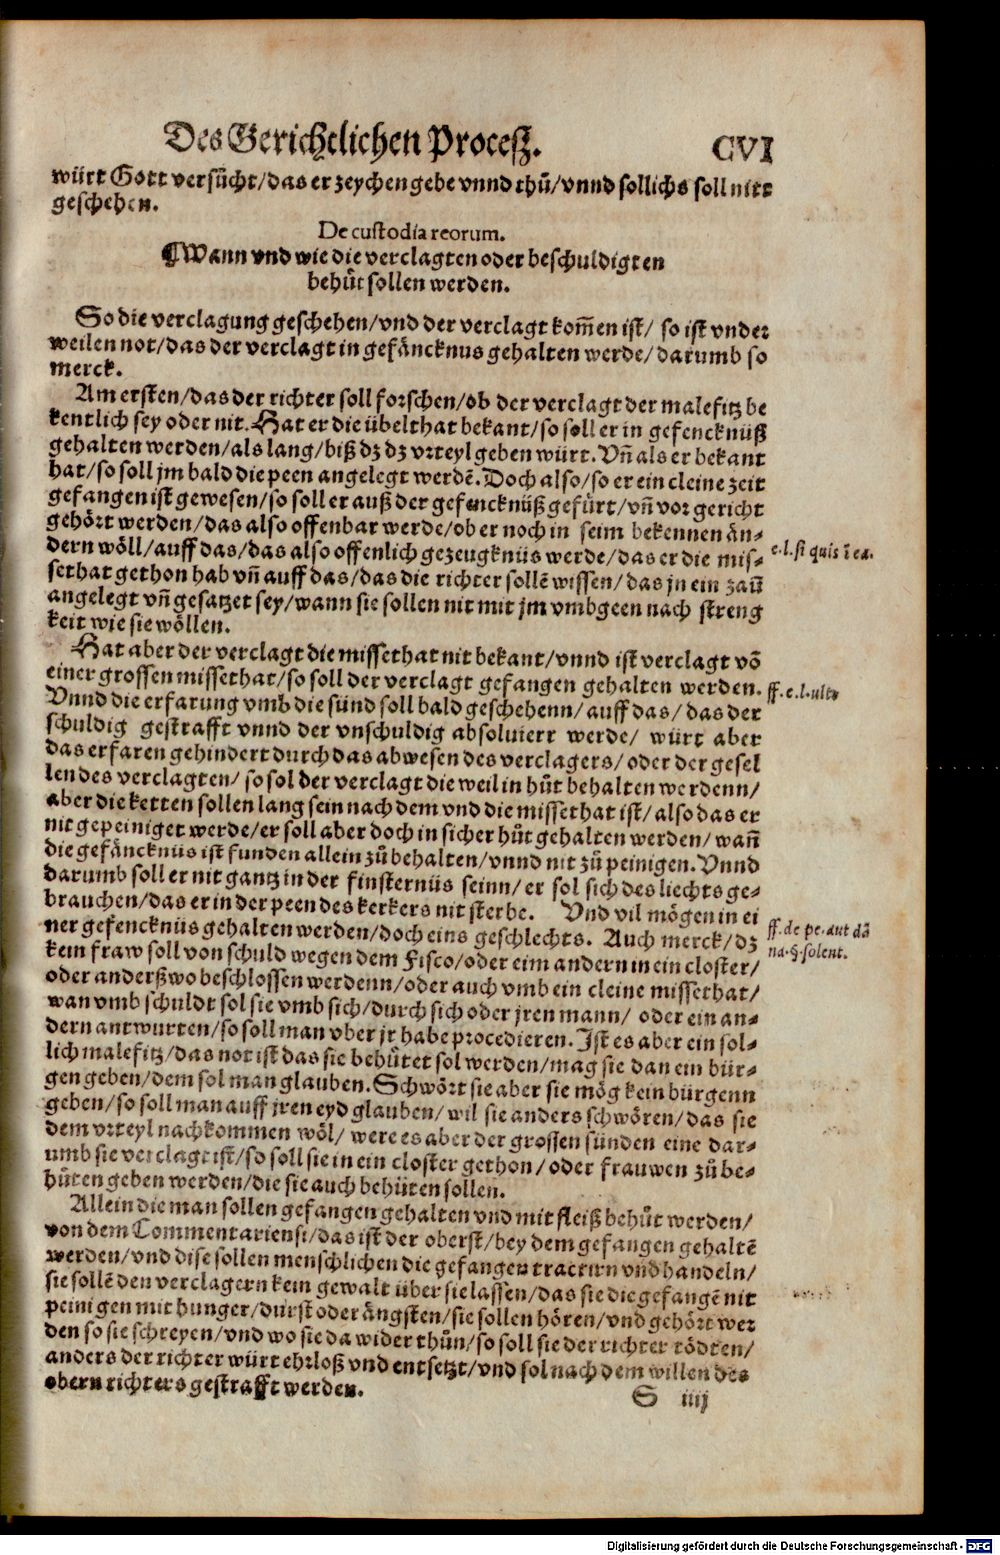 Des Gerichtlichen Proceſʒ. CVI
würt Gott versůcht/das er zeychen gebe vnnd thů/vnnd sollichs soll nitt
geschehen.
De custodia reorum.
¶Wann vnd wie die verclagten oder beschuldigten
behůt sollen werden.
So die verclagung geschehen/vnd der verclagt kom̃en ist/ so ist vnder
weilen not/das der verclagt in gefäncknus gehalten werde/darumb so
merck.
Am ersten/das der richter soll forschen/ob der verclagt der malefitz be
kentlich sey oder nit. Hat er die übelthat bekant/so soll er in gefencknüß
gehalten werden/als lang/biß dz dz vrteyl geben würt. Vñ als er bekant
hat/so soll jm bald die peen angelegt werdē. Doch also/so er ein cleine zeit
gefangen ist gewesen/so soll er auß der gefencknüß gefürt/vñ vor gericht
gehört werden/das also offenbar werde/ob er noch in seim bekennen än-
dern wöll/auff das/das also offenlich gezeugknüs werde/das er die mis-
sethat gethon hab vñ auff das/das die richter sollē wissen/das jn ein zaum̃
angelegt vñ gesatzet sey/wann sie sollen nit mit jm vmbgeen nach streng
keit wie sie wöllen.
e.l.si quis ī ea.
Hat aber der verclagt die missethat nit bekant/vnnd ist verclagt vō
einer grossen missethat/so soll der verclagt gefangen gehalten werden.
Vnnd die erfarung vmb die sünd soll bald geschehenn/auff das/das der
schuldig gestrafft vnnd der vnschuldig absoluiert werde/ würt aber
das erfaren gehindert durch das abwesen des verclagers/oder der gesel
len des verclagten/so sol der verclagt die weil in hůt behalten werdenn/
aber die ketten sollen lang sein nach dem vnd die missethat ist/also das er
nit gepeiniget werde/er soll aber doch in sicher hůt gehalten werden/wañ
die gefäncknüs ist funden allein zů behalten/vnnd nit zů peinigen. Vnnd
darumb soll er nit gantz in der finsternüs seinn/er sol sich des liechts ge-
brauchen/das er in der peen des kerkers nit sterbe. Vnd vil mögen in ei
ner gefencknüs gehalten werden/doch eins geschlechts. Auch merck/dz
kein fraw soll von schuld wegen dem Fisco/oder eim andern in ein closter/
oder anderßwo beschlossen werdenn/oder auch vmb ein cleine missethat/
wan vmb schuldt sol sie vmb sich/durch sich oder jren mann/ oder ein an-
dern antwurten/so soll man vber jr habe procedieren. Ist es aber ein sol-
lich malefitz/das not ist das sie behůtet sol werden/mag sie dan ein bür-
gen geben/dem sol man glauben. Schwört sie aber sie mög kein bürgenn
geben/so soll man auff jren eyd glauben/wil sie anders schwören/das sie
dem vrteyl nachkommen wöl/ were es aber der grossen sünden eine dar-
umb sie verclagt ist/so soll sie in ein closter gethon/oder frauwen zů be-
hůten geben werden/die sie auch behüten sollen.
ff.e.l.ulti
ff.de pe.aut dā
na.§.solent.
Allein die man sollen gefangen gehalten vnd mit fleiß behůt werden/
von dem Commentariensi/das ist der oberst/bey dem gefangen gehaltē
werden/vnd dise sollen menschlichen die gefangen tractirn vnd handeln/
sie sollē den verclagern kein gewalt über sie lassen/das sie die gefangē nit
peinigen mit hunger/durst oder ängsten/sie sollen hören/vnd gehört wer
den so sie schreyen/vnd wo sie da wider thůn/so soll sie der richter tödten/
anders der richter würt ehrloß vnd entsetzt/vnd sol nach dem willen des
obern richters gestrafft werden.
S iiij
Digitalisierung gefördert durch die Deutsche Forschungsgemeinschaft - DFG